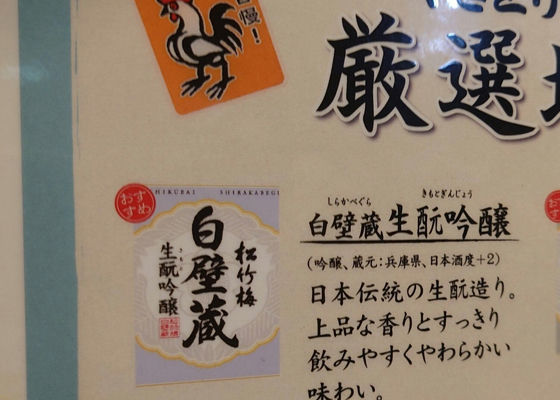 自慢!
厳選
おすすめ
SHIRAKABEGURA
松竹梅
白壁蔵
生酛吟醸
しらかべぐら きもとぎんじょう
白壁蔵生酛吟醸
(吟醸、蔵元:兵庫県、日本酒度+2)
日本伝統の生酛造り。
上品な香りとすっきり
飲みやすくやわらかい
味わい。